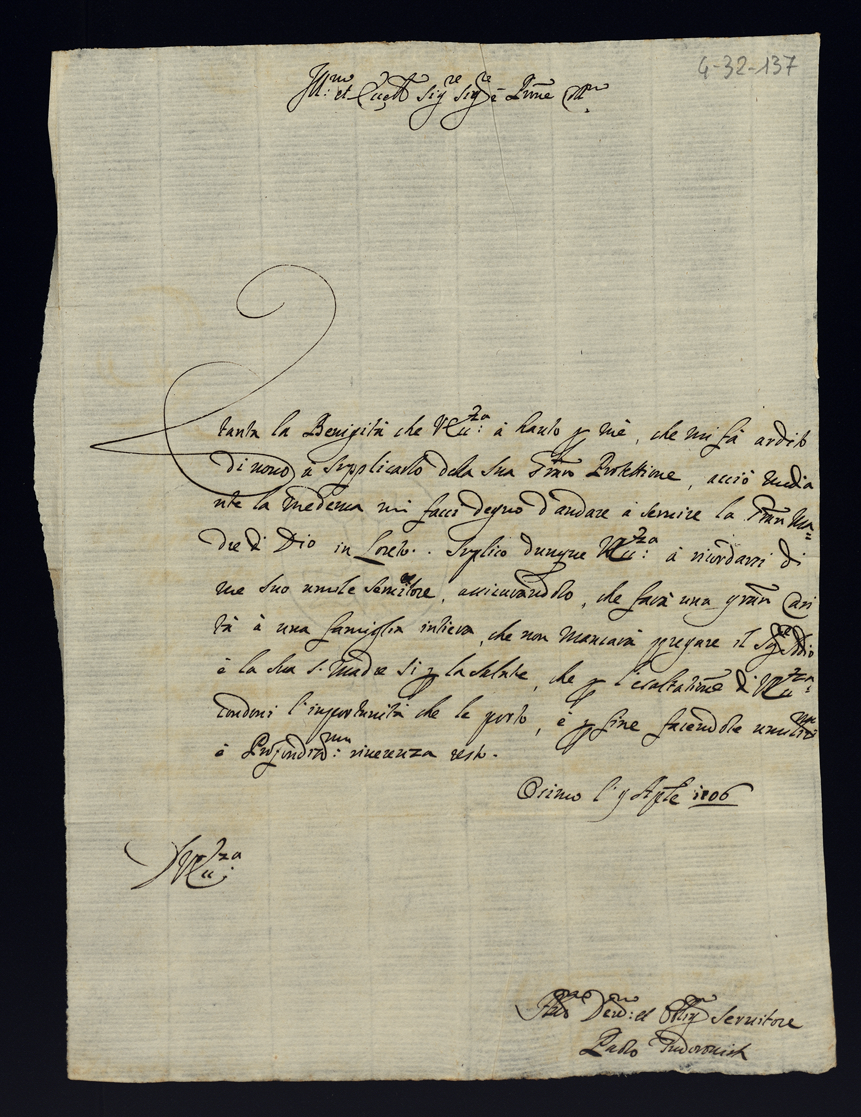 4-32-137
Ill:mo et Ecc. Sig:re Sig:re e Prone
tanta la Benigità che V Ecc:za à hauto p mè, che mi fà ardito
Di novo à Supplicarlo dela Sua Gran Protettione, acciò media
nte la medema mi facci degno d'andare à servire la Gran Ma=
dre di Dio in Loreto. Suplico dunque V Ecc:za à ricordarsi di
me suo umile Servitore, assicurandolo, che farà una gran Cari
tà à una famiglia intiera, che non mancarà pregare il Sig:re Iddio
è la sua S. Madre si p la salute, che p l'esaltatione di V Ecc:za
condoni l'inportunità che le porto, è p fine facendole
è Profondis:ma riverenza resto.
Osimo l'9 Aple 1706
D V Ecc:za
Dev:mo et Obblig:mo Servitore
Paolo